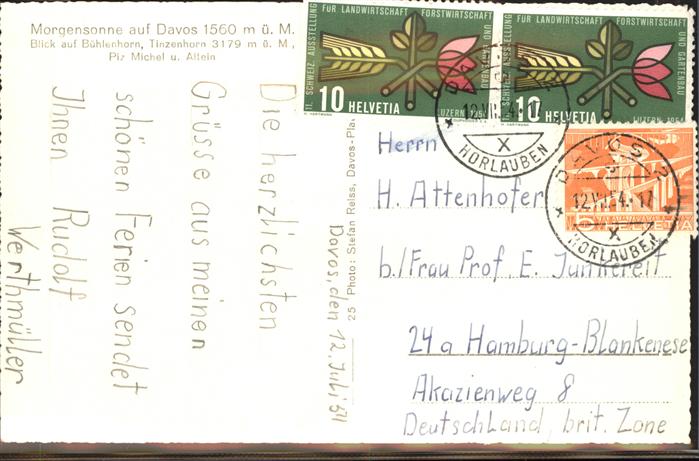 Morgensonne auf Davos 1560 m ü. M.
Blick auf Bühlenhorn, Tinzenhorn 3179 m ü. M.,
Piz Michel u. Altein
Die herzlichsten
Grüsse aus meinen
schönen Ferien sendet
Ihnen Rudolf
Werthmüller
Davos, den 12. Juli 54
25 Photo: Stefan Reiss, Davos-Platz
11. SCHWEIZ. AUSSTELLUNG
FÜR LANDWIRTSCHAFT FORSTWIRTSCHAFT
UND GARTENBAU
10 HELVETIA
LUZERN 1954
FÜR LANDWIRTSCHAFT FORSTWIRTSCHAFT
UND GARTENBAU
10 HELVETIA
LUZERN 1954
5
HELVETIA
X
HORLAUBEN
DAVOS 2
12.VII.54.-17
X
HORLAUBEN
Herrn
H. Attenhofer
b./Frau Prof. E. Junkereit
24a Hamburg-Blankenese
Akazienweg 8
Deutschland, brit. Zone